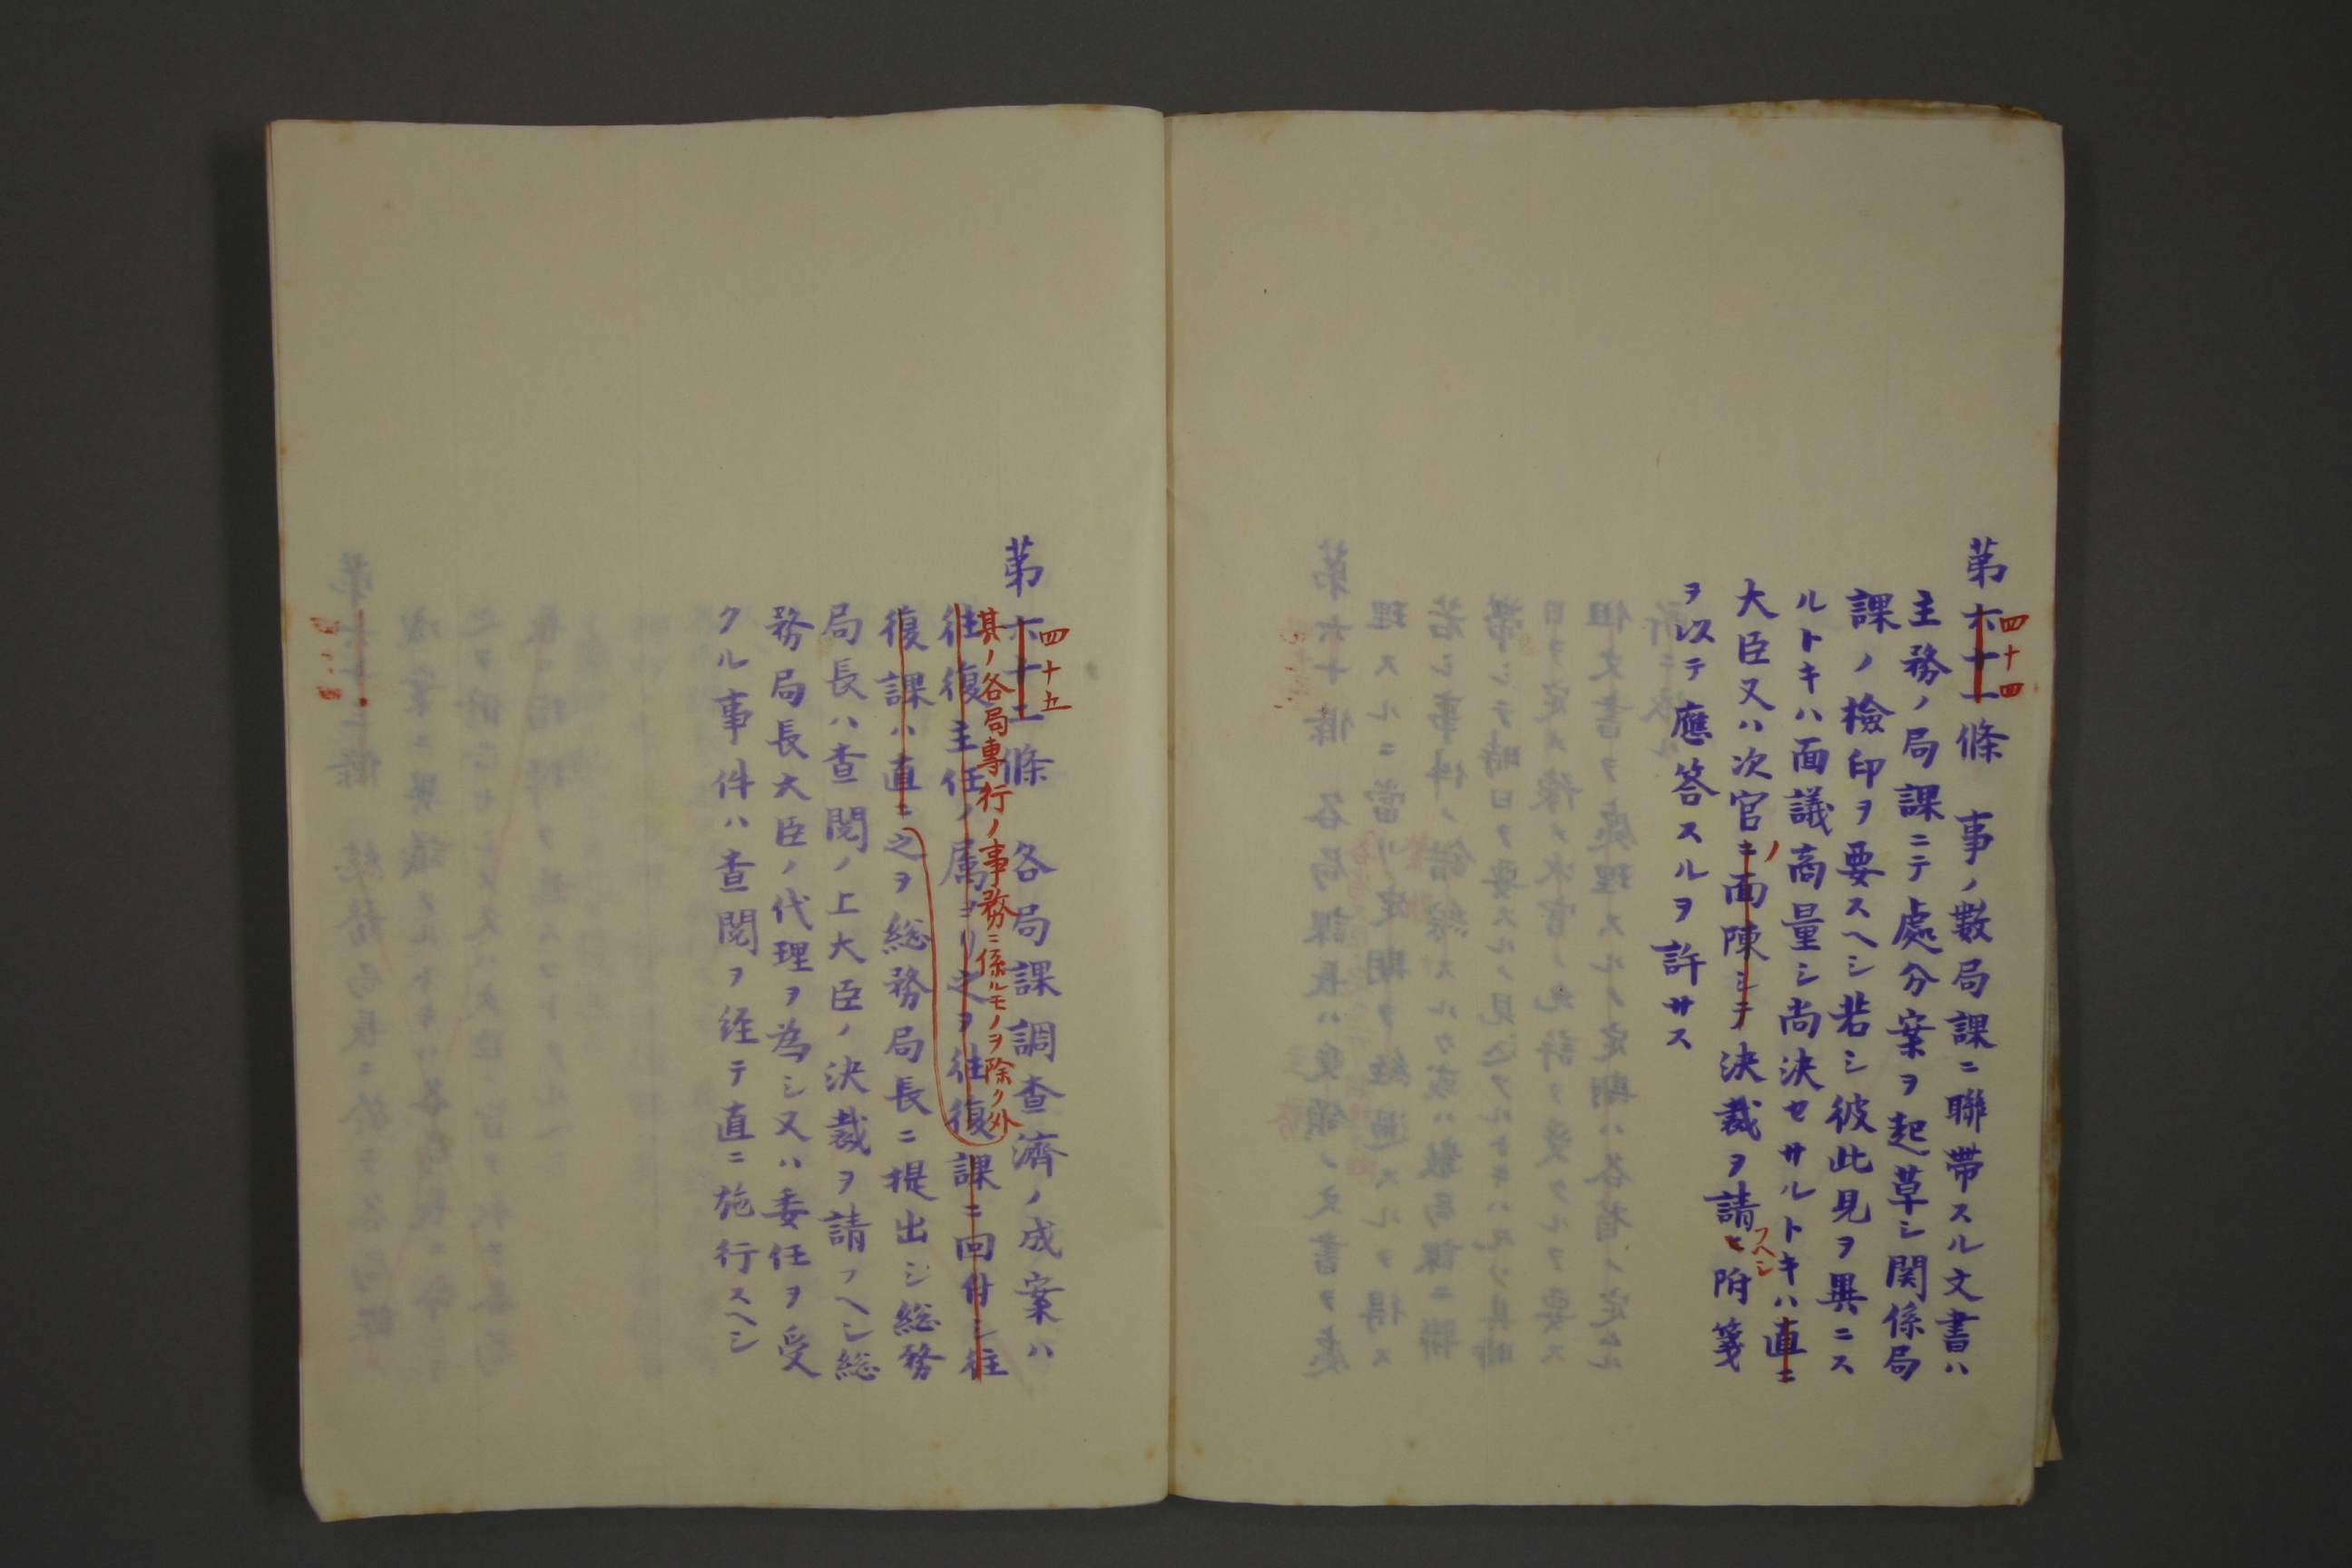 四十四
第六十一條 事ノ數局課ニ聯帶スル文書ハ
主務ノ局課ニテ處分案ヲ起草シ関係局
課ノ檢印ヲ要スヘシ若シ彼此見ヲ異ニス
ルトキハ面議商量シ尚決セサルトキハ直ニ
ノ
大臣又ハ次官ニ面陳シテ決裁ヲ請ヒ附箋
フヘシ
ヲ以テ應答スルヲ許サス
四十五
第六十二條 各局課調査濟ノ成案ハ
其ノ各局專行ノ事務ニ係ルモノヲ除ク外
往復主任ノ属ヨリ之ヲ往復課ニ回付シ往
復課ハ直ニ之ヲ総務局長ニ提出シ総務
局長ハ査閲ノ上大臣ノ決裁ヲ請フヘシ総
務局長大臣ノ代理ヲ為シ又ハ委任ヲ受
クル事件ハ査閲ヲ経テ直ニ施行スヘシ